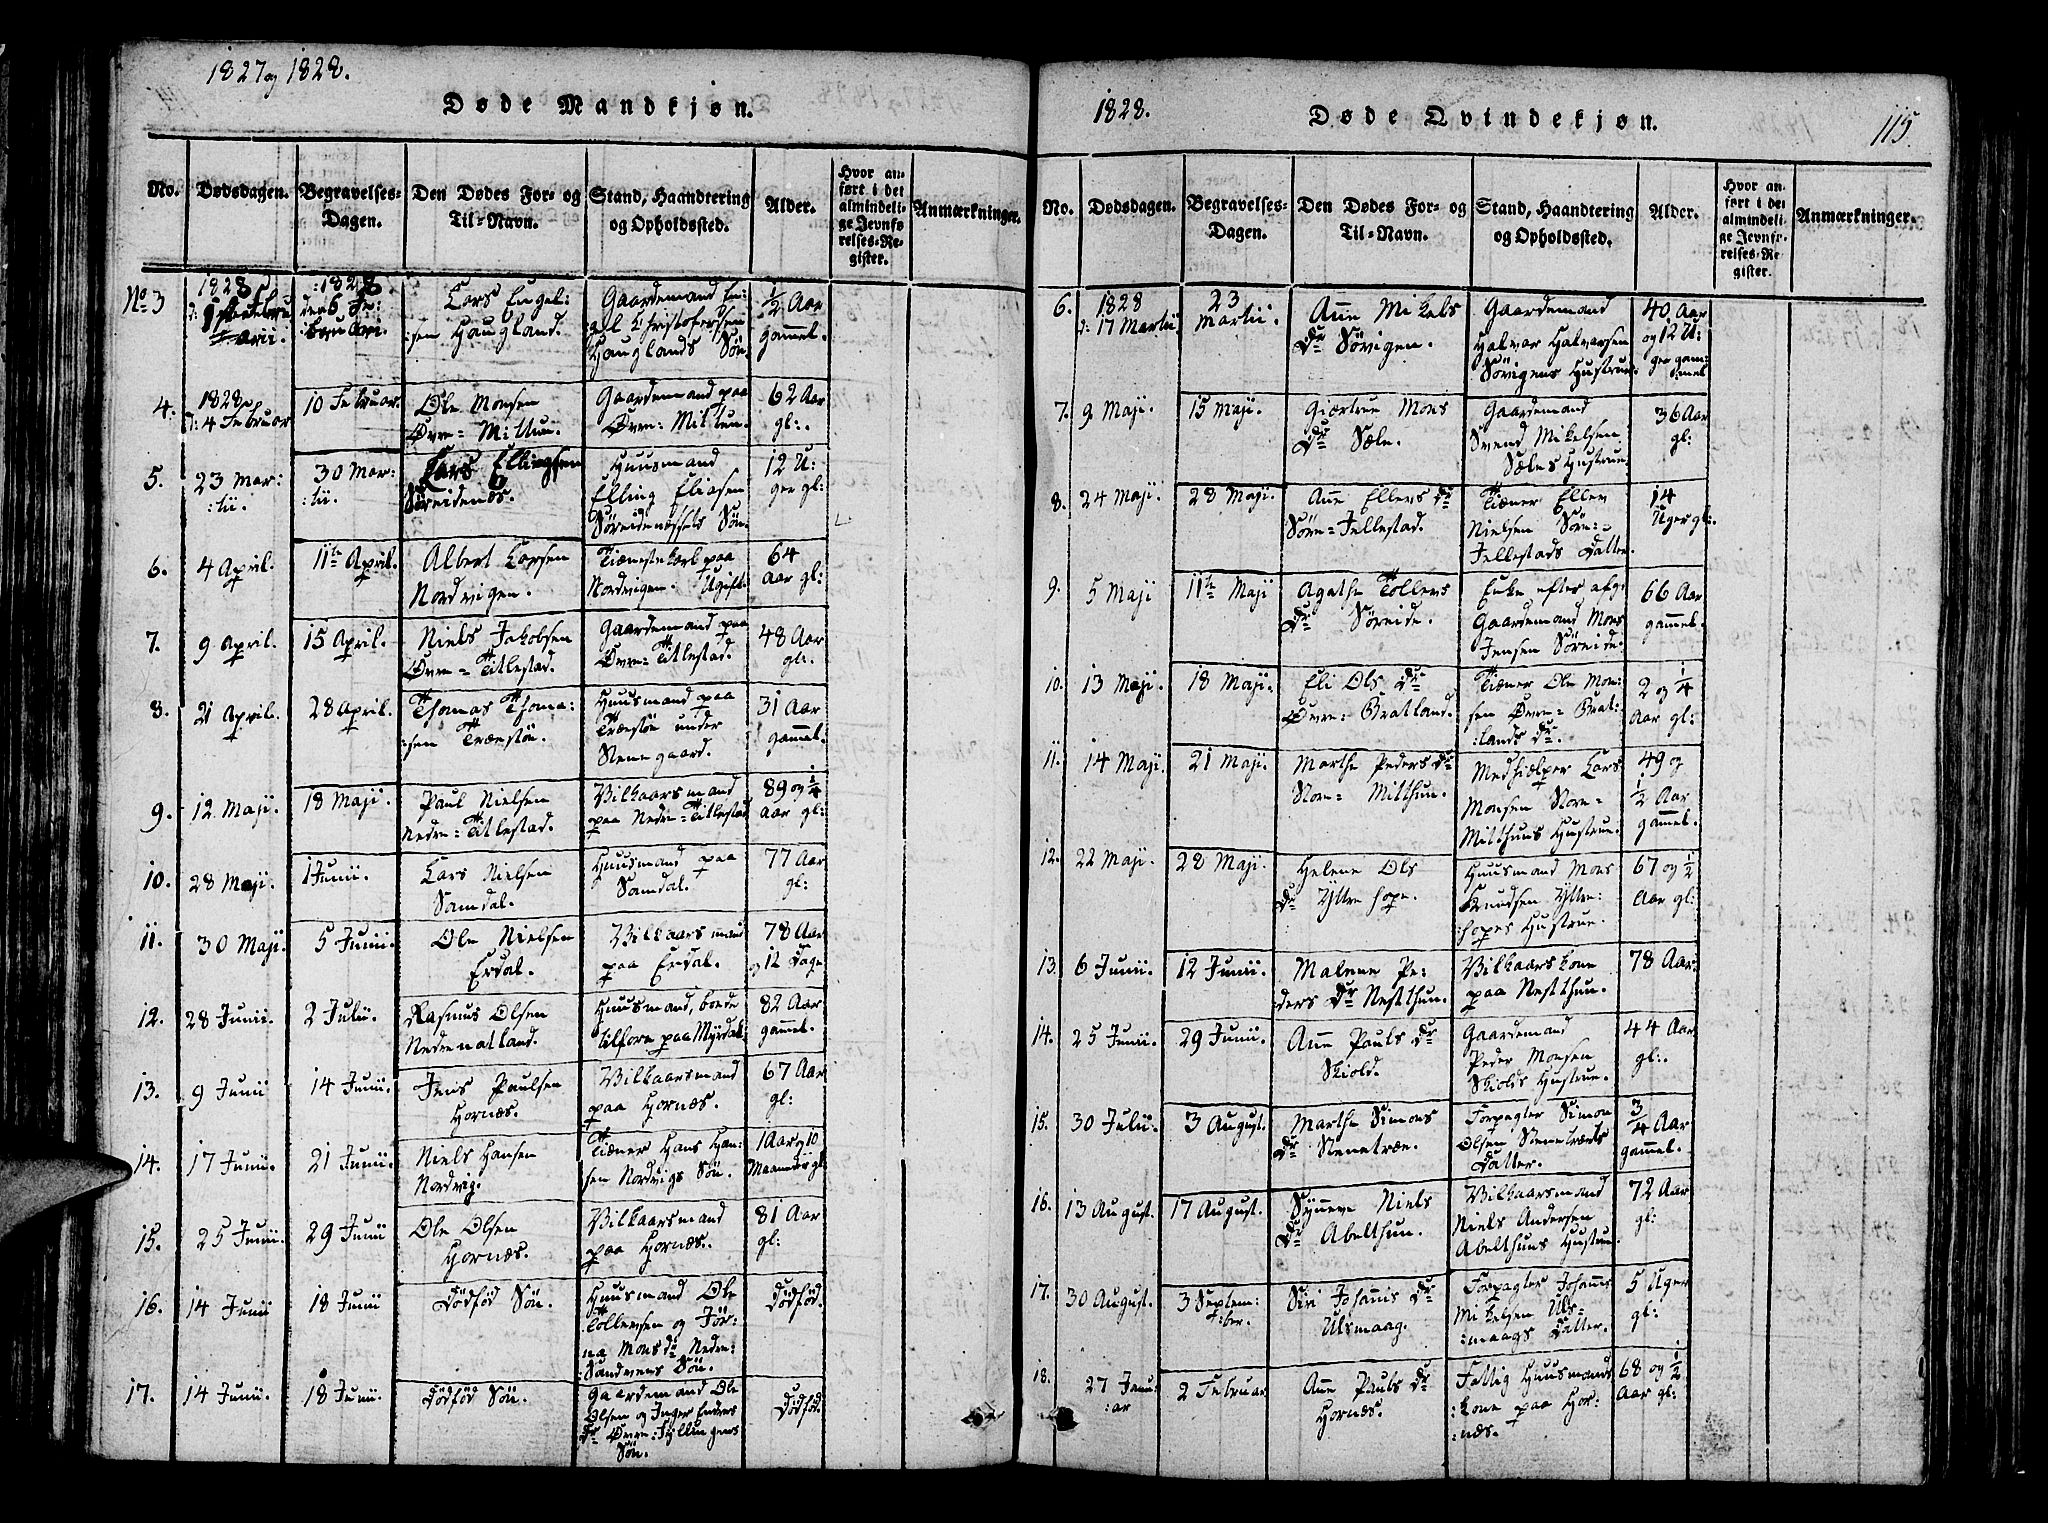 1827 og 1828.
Døde Mandkjøn.
No.
Dødsdagen.
Begravelses-
Dagen.
Den Dødes For- og
Til-Navn.
Stand, Haandtering
og Opholdssted.
Alder.
Hvor an-
ført i det
almindeli-
ge Jevnfø-
relses-Re-
gister.
Anmærkninger.
No 3
1828
1828
den 6 Fe-
bruari.
Lars Engel:
:sen Haugland.
Gaardemand En:
gel Christofersen
Hauglands Søn
1/2 Aar
gammel.
4.
1828
d: 4 Februar
10 Februar.
Ole Monsen
Øvre= Mittun.
Gaardemand paa
Øvre= Mittun.
62 Aar
gl:.
5.
23 Mar:
:tii.
30 Mar:
:tii.
Lars Ellingsen
Søreidenes.
Huusmand
Elling Eliasen
Søreidenæssets Søn
12 U:
ger gl:
6.
4 April.
11te April.
Albert Larsen
Nordvigen.
Tienestekarl paa
Nordvigen. Ugift.
64
Aar gl:
7.
9 April.
15 April.
Niels Jakobsen
Øvre= Titlestad.
Gaardemand paa
Øvre= Titlestad.
48 Aar
gl:.
8.
21 April.
28 April.
Thomas Thoma:
:sen Trænstøn.
Huusmand paa
Trænstøn under
Stenegaard.
31 Aar
gammel.
9.
12 Maji.
18 Maji.
Paul Nielsen
Nedre=Titlestad.
Vilkaarsmand
paa Nedre=Titlestad
89 og 1/4
Aar gl:
10.
28 Maji.
1 Junii.
Lars Nielsen
Samdal.
Huusmand paa
Samdal.
77 Aar
gl:
11.
30 Maji.
5 Junii.
Ole Nielsen
Erdal.
Vilkaarsmand
paa Erdal.
78 Aar
og 12 Dage
12.
28 Junii.
2 Julii.
Rasmus Olsen
Nedrenatland.
Huusmand, boede
tilforn paa Myrdal.
82 Aar
gammel.
13.
9 Junii
14 Junii.
Jens Paulsen
Hornæs.
Vilkaarsmand
paa Hornæs.
67 Aar
gl:
14.
17 Junii.
21 Junii.
Niels Hansen
Nordvig.
Tiæner Hans Han:
sen Nordvigs Søn
1 Aar og 10
Maaneder gl
15.
25 Junii.
29 Junii
Ole Olsen
Hornæs.
Vilkaarsmand
paa Hornæs.
81 Aar
gl:
16.
14 Junii
18 Junii
Dødfød Søn.
Huusmand Ole
Tollevsen og Jør:
na Monsdr Nedre:
:Sandvens Søn.
Dødfød.
17.
14 Junii.
18 Junii.
Dødfød Søn.
Gaardemand Ole
Olsen og Inger Enders
Dr Øvre: Fyllingens
Søn.
Dødfød.
1828.
Døde Qvindekjøn.
115.
No.
Dødsdagen.
Begravelses-
Dagen.
Den Dødes For- og
Til-Navn.
Stand, Haandtering
og Opholdssted.
Alder.
Hvor an-
ført i det
almindeli-
ge Jevnfø-
relses-Re-
gister.
Anmærkninger.
6.
1828
d: 17 Martii
23
Martii.
Ane Mikels
Dr Sørvigen.
Gaardemand
Halvar Halvarsen
Sørvigens Hustrue.
40 Aar
og 12 U:
ger gam:
:mel
7.
9 Maji.
15 Maji.
Giærtrue Mons
Dr Sæle.
Gaardemand
Svend Mikelsen
Sæles Hustrue.
36 Aar
gl:
8.
24 Maji.
28 Maji.
Ane Ellers Dr
Søre=Jellestad.
Tiæner Eller
Nielsen Søre:
Jellestads Datter.
14
Uger gl:
9.
5 Maji
11te Maji
Agathe Tollevs
Dr Søreide.
Enke efter afg:
Gaardemand Mons
Jensen Søreide.
66 Aar
gammel.
10.
13 Maji.
18 Maji.
Eli Ols Dr
Øvre= Bratland.
Tiæner Ole Mon:
sen Øvre= Brat:
:lands Dr.
2 og 1/4
Aar gl:
11.
14 Maji.
21 Maji.
Marthe Peders Dr
Store= Mitthun.
Medhielper Lars
Monsen Store=
Mitthuns Hustrue.
49 og
1/2 Aar
gammel.
12.
22 Maji.
28 Maji.
Helene Ols
Dr Yttre Hope.
Huusmand Mons
Knudsen Yttre:
:hopes Hustrue.
67 og 1/2
Aar gl:
13.
6 Junii.
12 Junii.
Malene Pe:
ders Dr Nestthun.
Vilkaarskone
paa Nestthun.
78 Aar.
14.
25 Junii.
29 Junii.
Ane Pauls Dr
Skiold.
Gaardemand
Peder Monsen
Skiolds Hustrue.
44 Aar
gl:.
15.
30 Julii.
3 August.
Marthe Simons
Dr Stenetræe.
Forpagter Simon
Olsen Stenetræets
Datter.
3/4 Aar
gammel.
16.
13 August.
17 August.
Synneve Niels
Dr Abelthun.
Vilkaarsmand
Niels Andersen
Abelthuns Hustrue.
72 Aar
gl:
17.
30 August.
3 Septem:
:ber.
Siri Johannis Dr
Ulsmaag.
Forpagter Johannes
Mikelsen Uls:
:maags Datter.
5 Uger
gl:
18.
27 Janu:
:ar
2 Februar
Ane Pauls Dr
Hornæs.
Fattig Huusmands
:kone paa Hor:
:næs.
68 og 1/2
Aar gl: